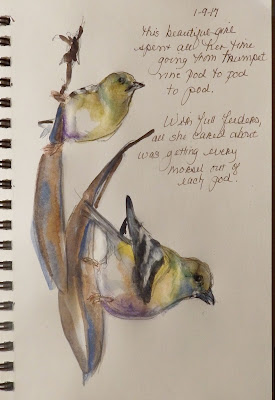 1-9-17
this beautiful girl
spent all her time
going from trumpet
vine pod to pod
to pod.
With full feeders,
all she cared about
was getting every
morsel out of
each pod.